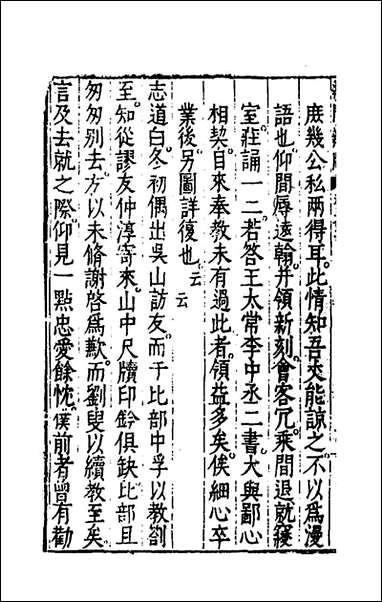 庶幾公私兩得耳此情知吾丈能諒之不以為漫
語也仰間辱遠翰并領新刻會客冗乘間退就寢
室莊誦一二若答王太常李中丞二書大與鄙心
相契自來奉教未有過此者領益多矣俟細心卒
業後另圖詳復也云云
志道白冬初偶出吳山訪友而于比部中孚以教劄
至知從謬友仲淳寄來山中尺牘印鈐俱缺比部且
匆匆別去方以未脩謝啓爲歉而劉叟以續教至矣
言及去就之際仰見一點忠愛餘忱僕前者曾有勸